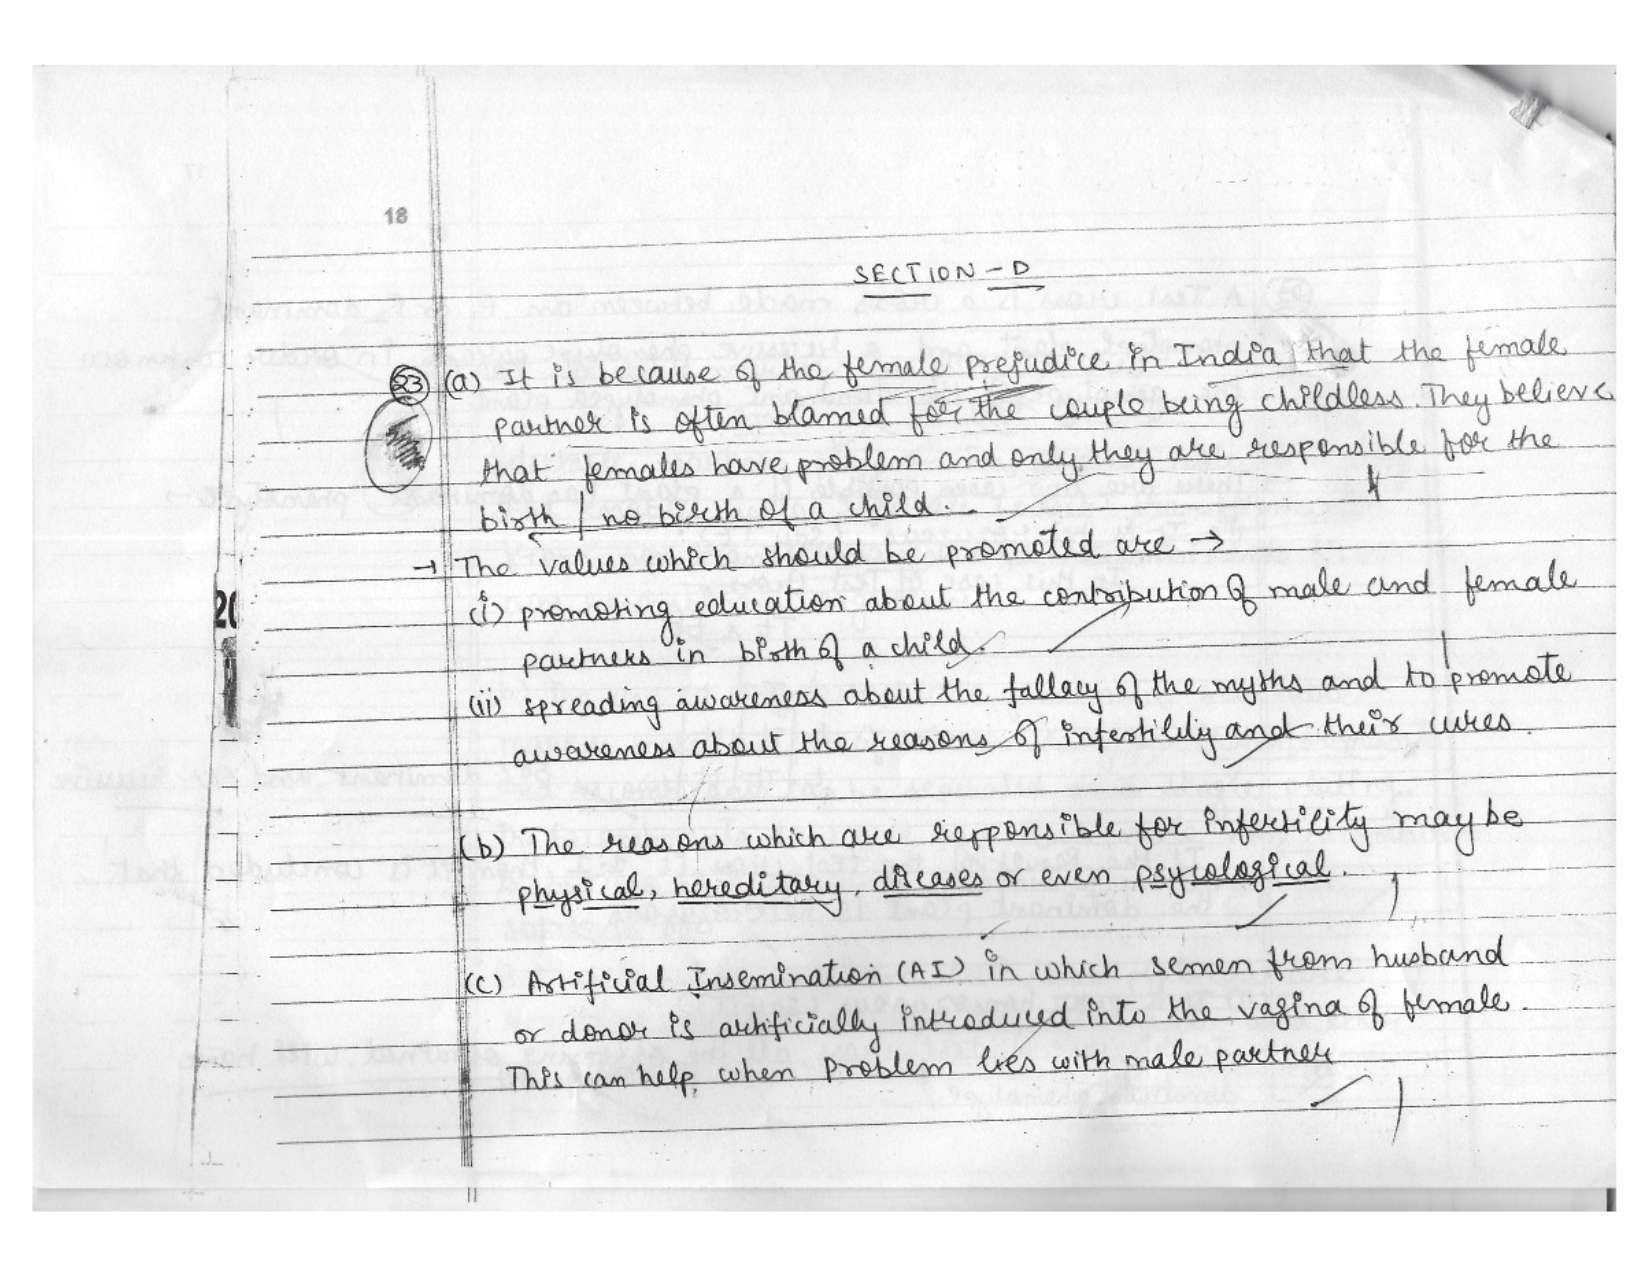 18
SECTION - D
23 (a) It is because of the female prejudice in India that the female
partner is often blamed for the couple being childless. They believe
that females have problem and only they are responsible for the
birth / no birth of a child.
→ The values which should be promoted are →
(i) promoting education about the contribution of male and female
partners in birth of a child.
(ii) spreading awareness about the fallacy of the myths and to promote
awareness about the reasons of infertility and their cures.
(b) The reasons which are responsible for infertility may be
physical, hereditary, diseases or even psycological.
(c) Artificial Insemination (AI) in which semen from husband
or donor is artificially introduced into the vagina of female.
This can help, when problem lies with male partner